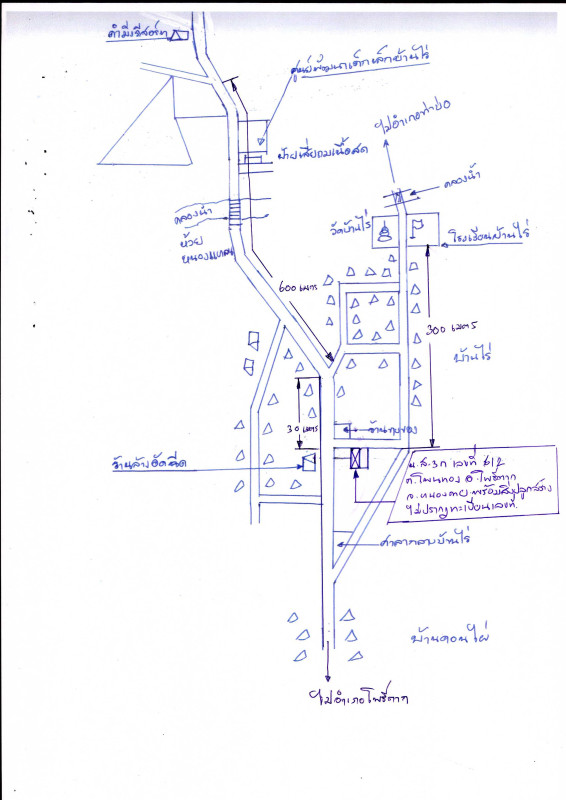 คำมีรีสอร์ท
ศูนย์พัฒนาเด็กเล็กบ้านไร่
ไปอำเภอท่าบ่อ
ป้ายเสี่ยถมเนื้อสด
คลองน้ำ
คลองน้ำ
วัดบ้านไร่
โรงเรียนบ้านไร่
ห้วย
600 เมตร
300 เมตร
บ้านไร่
30 เมตร
ร้านล้างอัดฉีด
น.ส.3ก เลขที่ 612
ต.โพนทอง อ.โพธิ์ตาก
จ.หนองคาย พร้อมสิ่งปลูกสร้าง
ไม่ปรากฏทะเบียนเลขที่
ศาลากลางบ้านไร่
บ้านดอนไผ่
ไปอำเภอโพธิ์ตาก